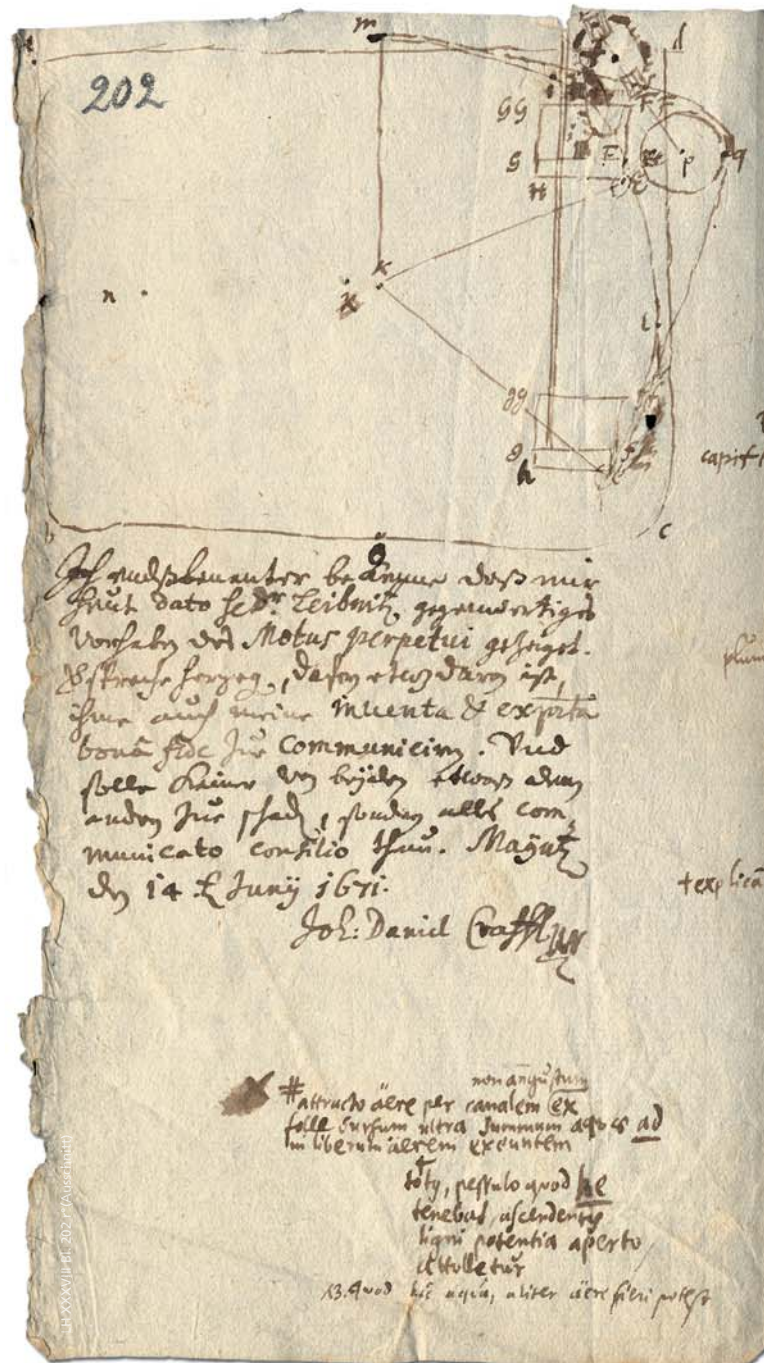 202
m
d
GG
i
FF
G
i
E
p
q
H
k
n
L
gg
g
h
c
capit
Ich endsbenanter bekenne daß mir
heut dato he. Dr. Leibnitz gegenwertiges
Vorhaben des Motus perpetui gezeiget.
Verspreche hergeg., dafern etwas daran ist,
ihme auch meine inventa & exp.ta
bonâ fide zue communiciren. Und
solle Keiner von beyden etwas dem
andern zue schad, sondern alles com-
municato consilio thun. Mayntz
den 14. Junij 1671.
Joh: Daniel Crafft
plum
+explica
non angustum
# attracto aëre per canalem ex
folle sursum ultra summum aquae ad
in liberum aërem exeuntem
+
pessulo quod
tenebat, ascendentis
ligni potentia aperto
attolletur
NB. quod hîc aqua, aliter aëre fieri potest
LH XXXVIII Bl. 202 r° (Ausschnitt)